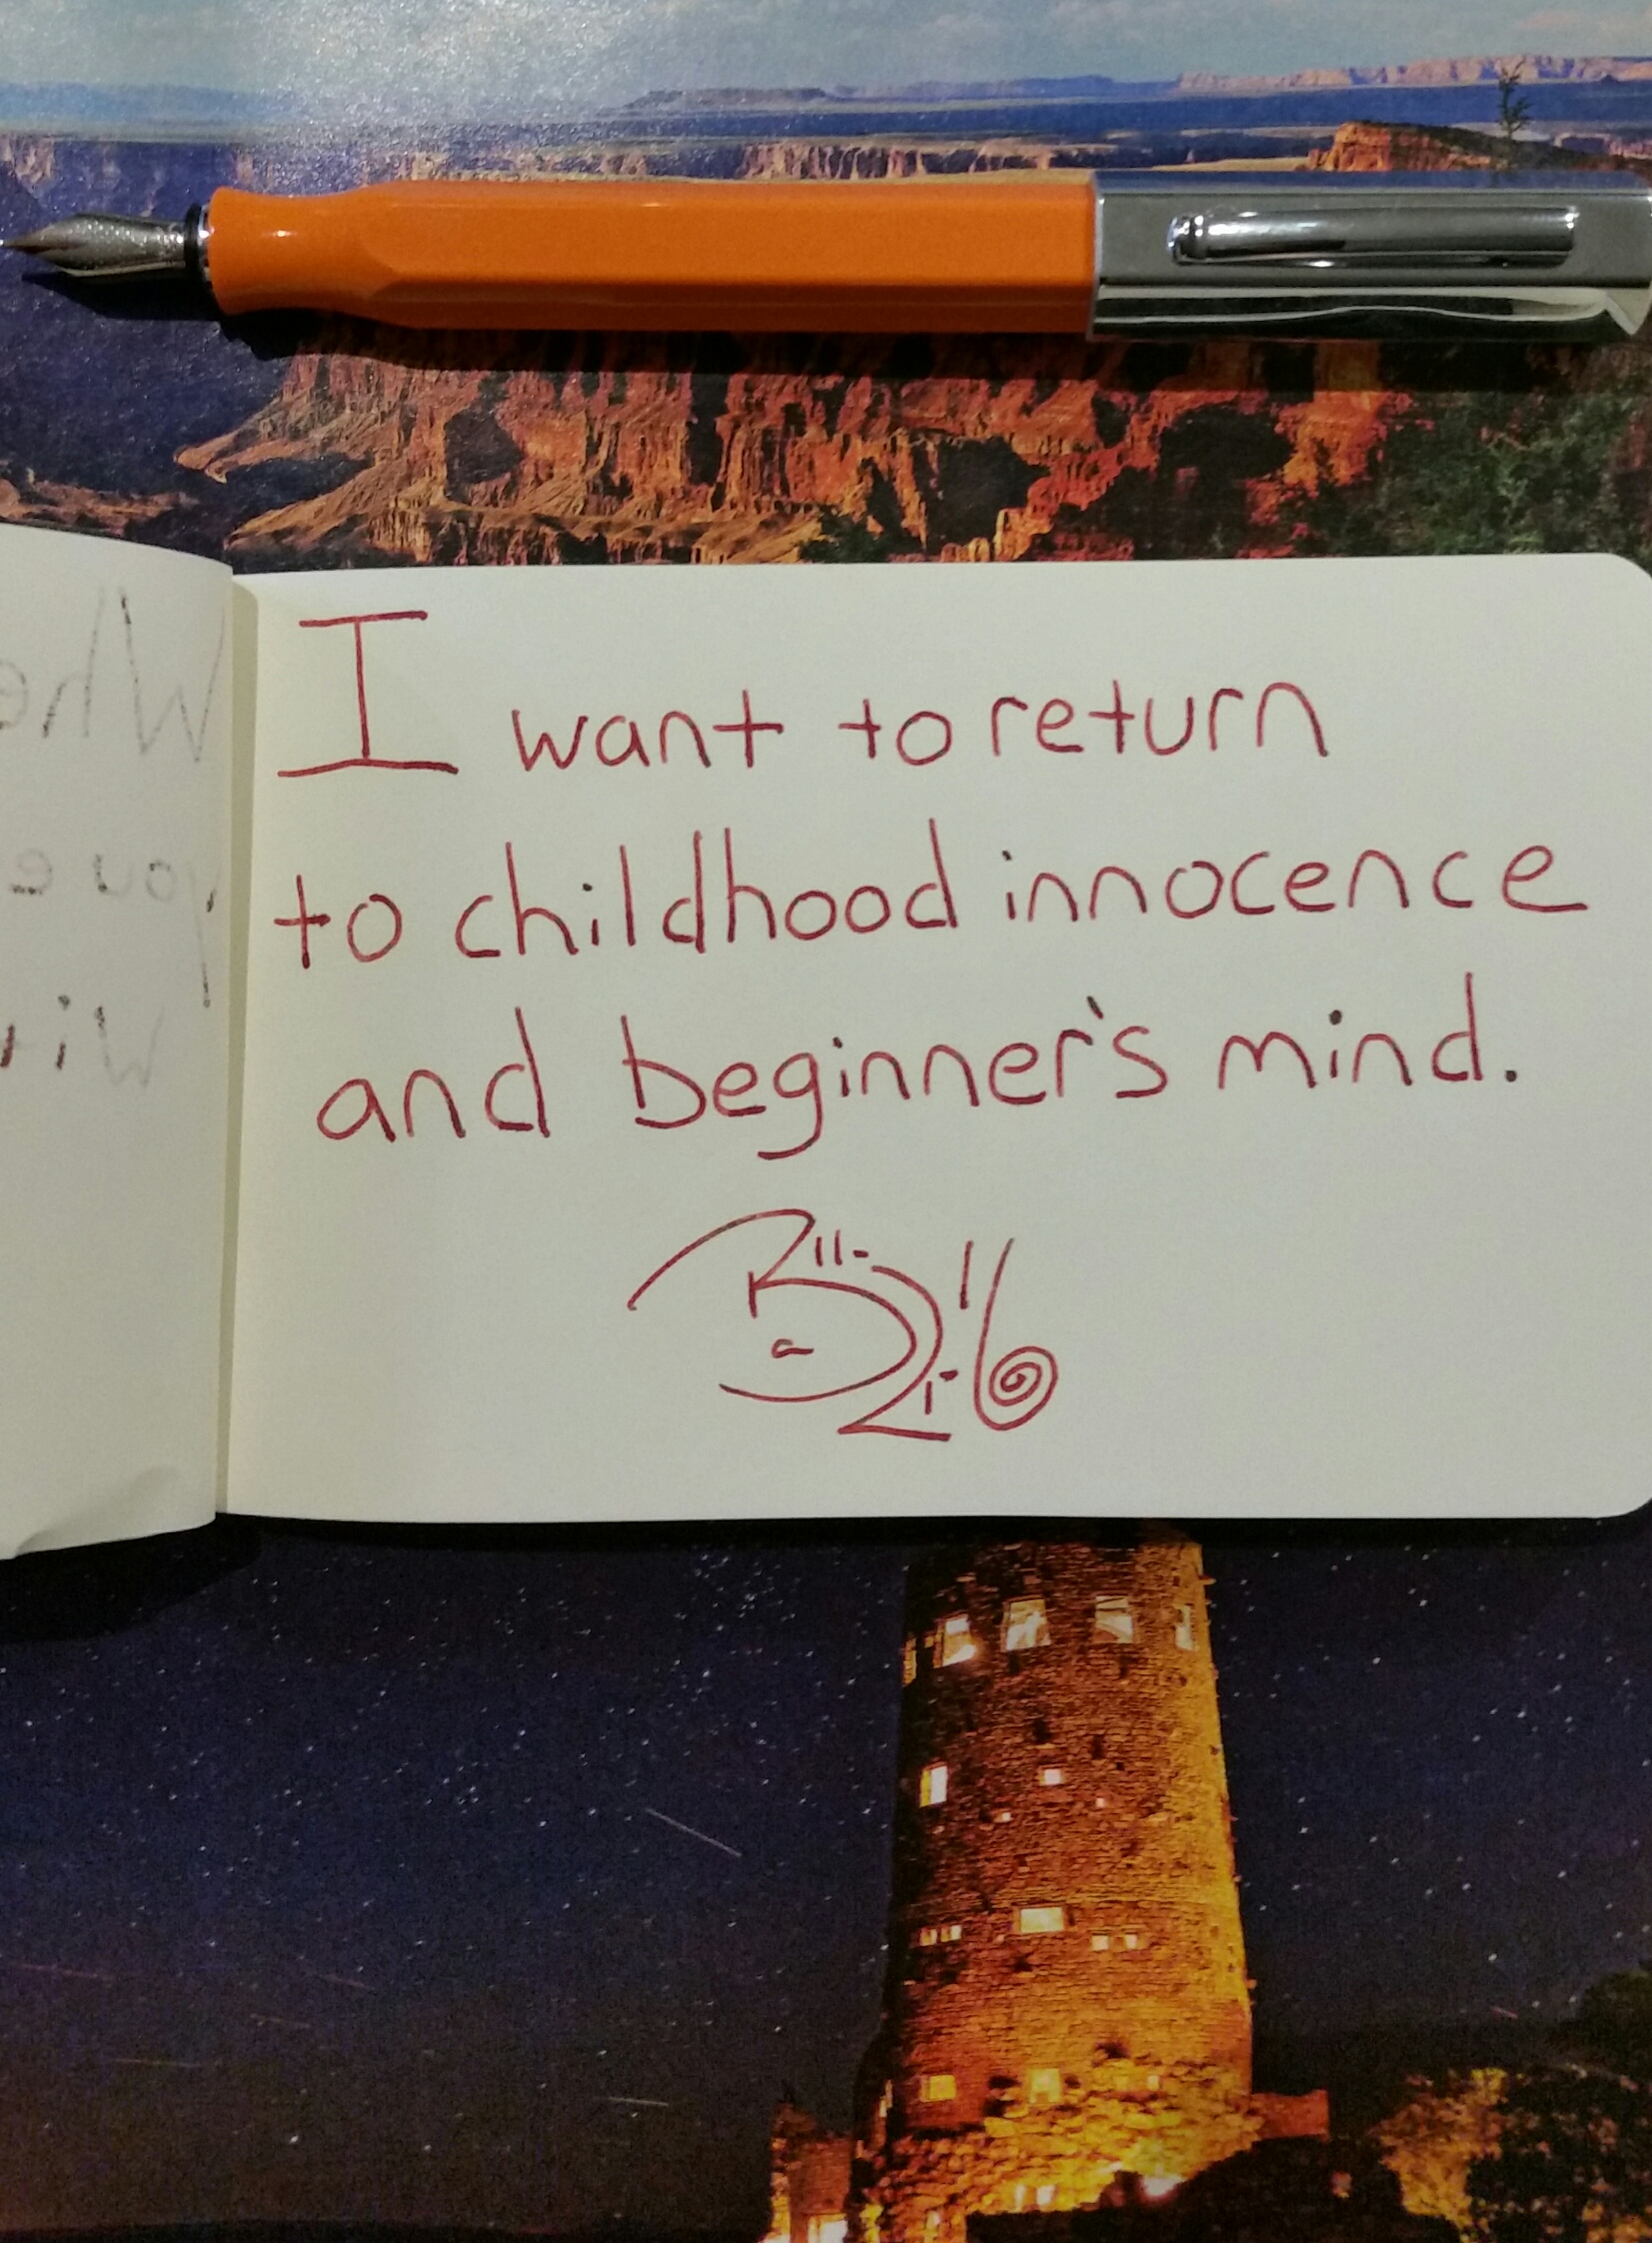 I want to return
to childhood innocence
and beginner's mind.